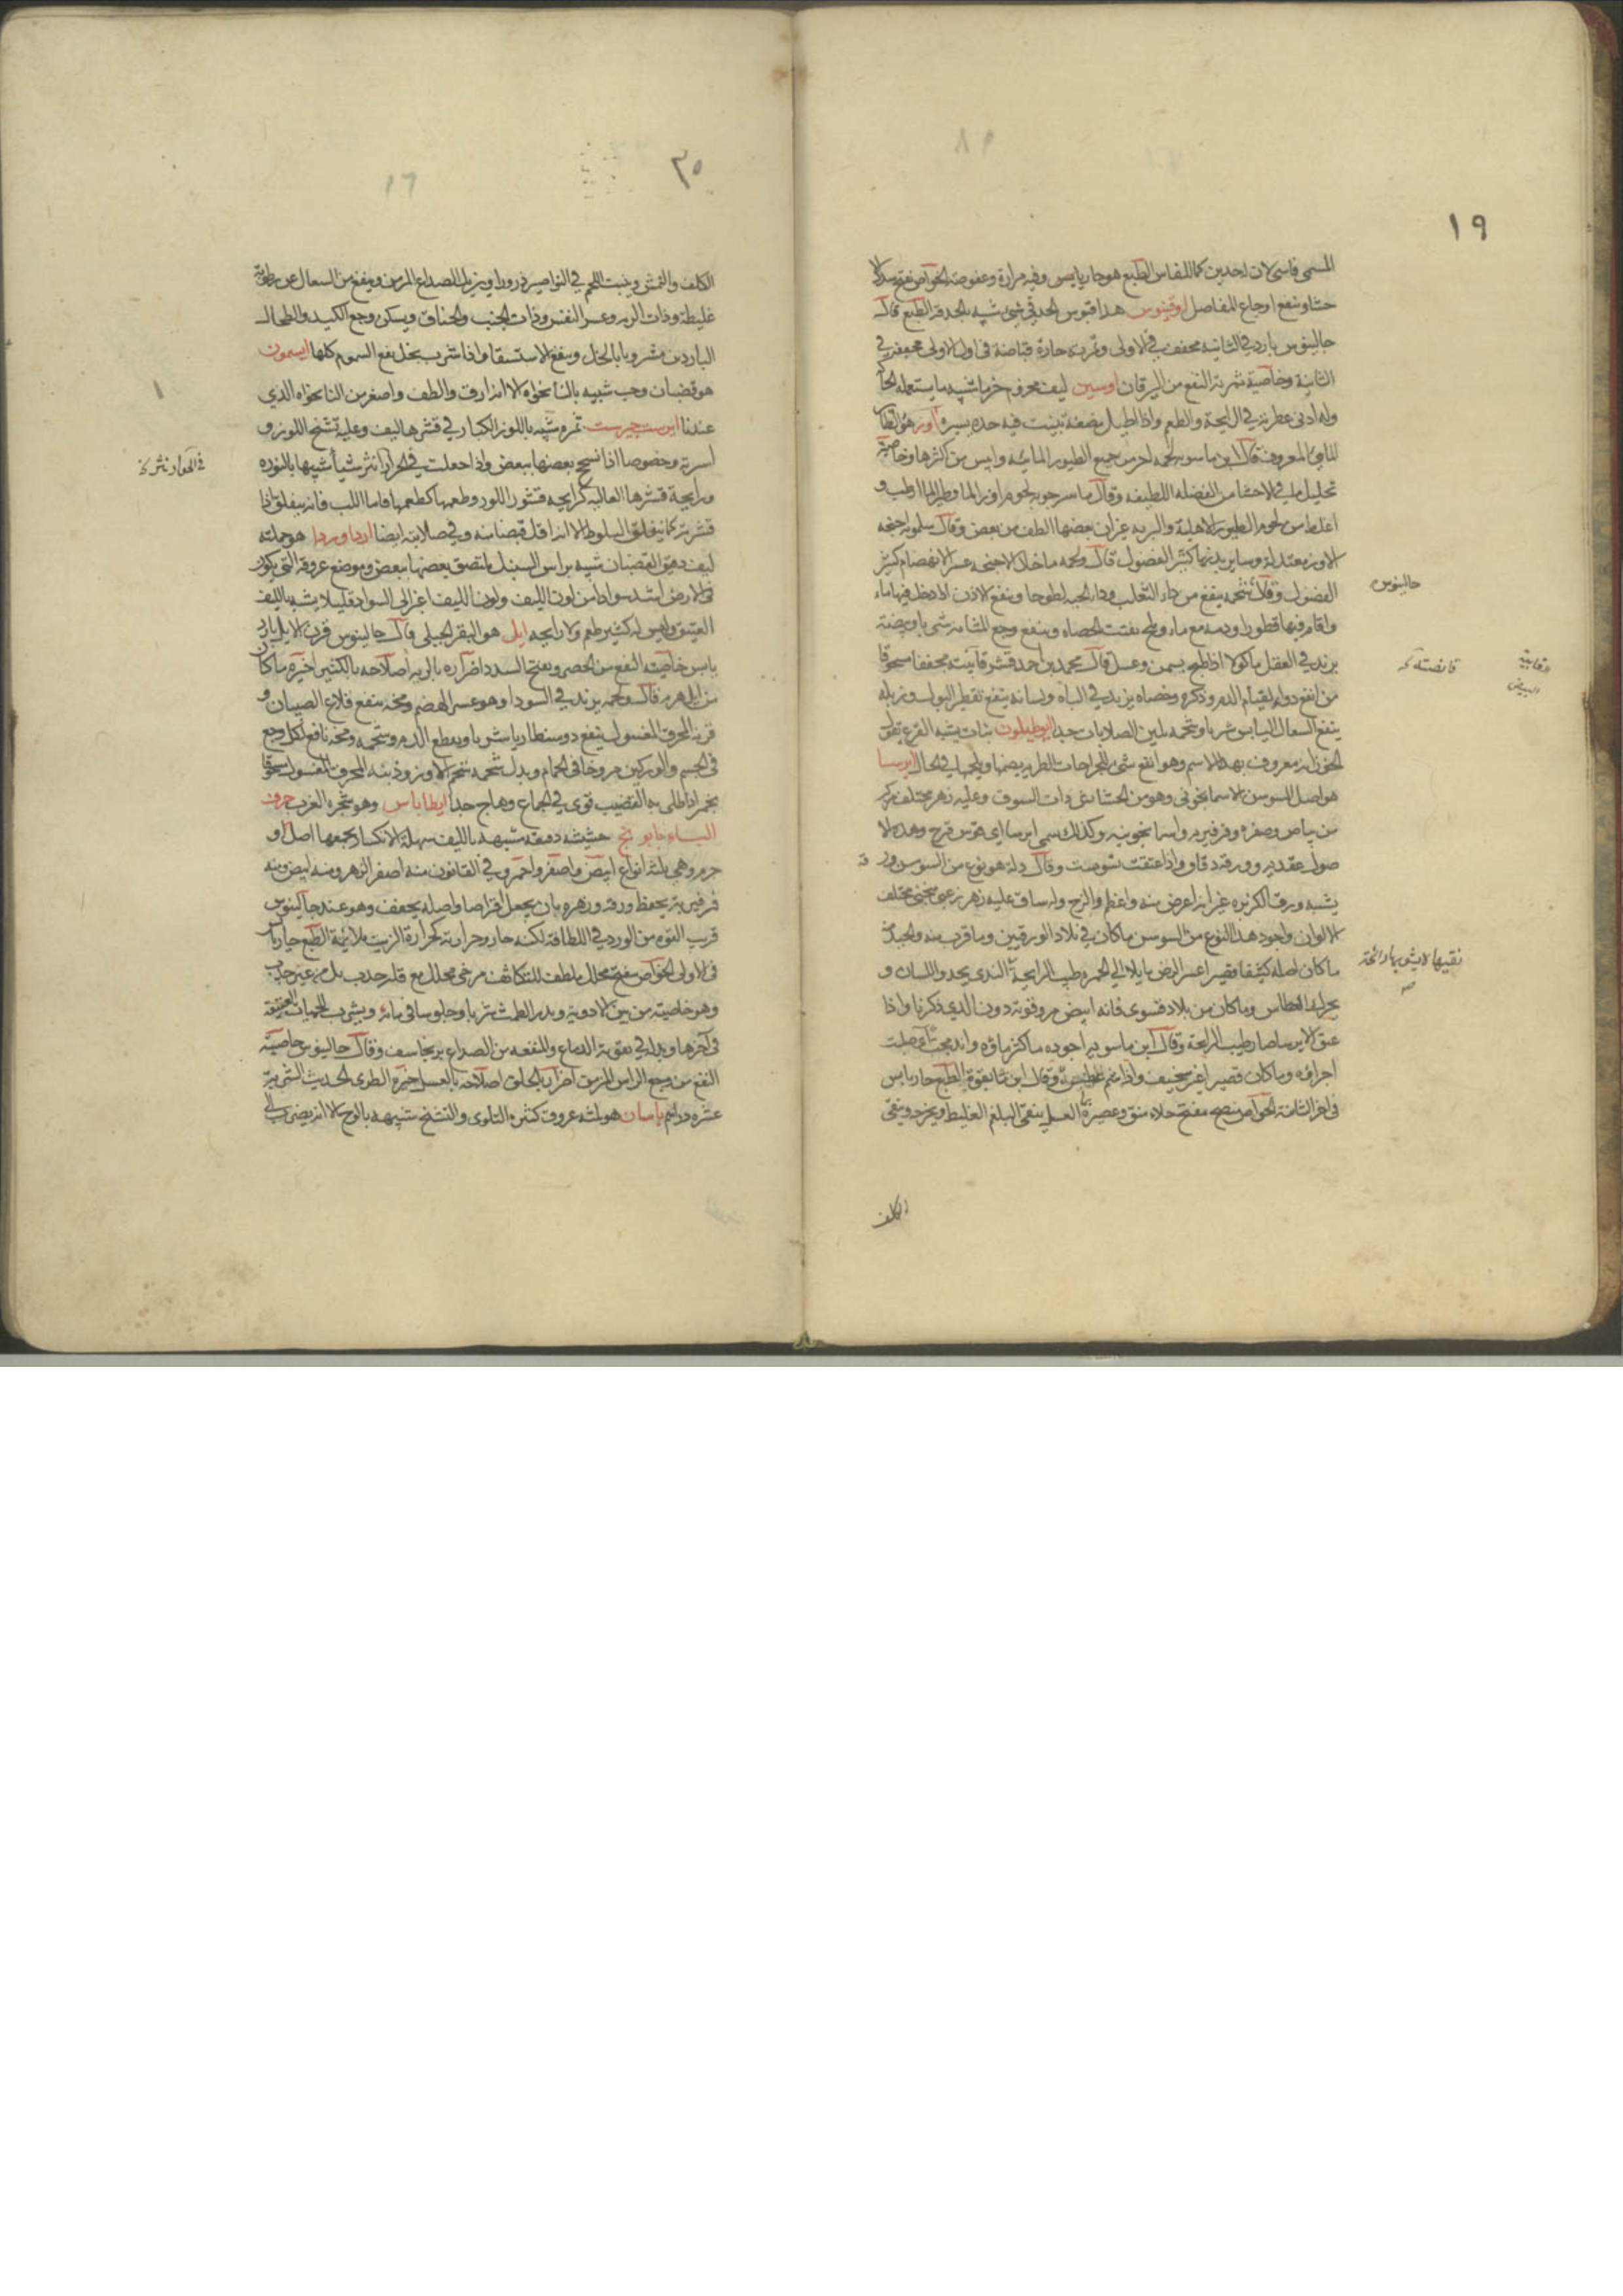 ١٩
المسمى فاسى لان لحدين كما للفاس الطبع هو حار يابس وفيه مرارة وعفوصة الخواص نفتح سدد الا
حشا وينفع اوجاع المفاصل اوقينوس هذا قيوس الحدقى شىء شبيه بالحدقة الطبع قال
جالينوس بارد في الثانيه مجفف في الاولى وثمرته حارة قباضة في اول الاولى مجففة في
الثانية وخاصية ثمرته النفع من اليرقان اوسبين ليف محزوم حزما شبيه ما يستعمله
وله ادنى عطرية في الرايحة والطعم واذا اطيل مضغه تبينت فيه حدة يسيرة اوز هو
المعروف قال ابن ماسويه لحمه احر من جميع الطيور المائية وايبس من اكثرها وخاصيته
تحليل ما في الاحشا من الفضلة اللطيفه وقال ماسرجويه لحوم اوز الما وطير الما ارطب و
اغلظ من لحوم الطيور الاهلية والبرية غير ان بعضها الطف من بعض وقال سلمويه اجنحة
الاوز معتدلة وساير بدنها كثير الفضول قال ولحمه ما خلا الاجنحه عسر الانهضام كثير
الفضول وقال شحمه ينفع من داء الثعلب وداء الحيه لطوخا وينفع الاذن اذا
جالينوس
واقام فيها قطورا ودمه مع ماء وملح يفتت الحصاه وينفع وجع المثانة شربا وبيضه
يزيد في العقل ماكولا اذا طبخ بسمن وعسل قال محمد بن احمد قشر قانيته مجففا مسحوقا
قانصته
من انفع دواء لقيام الدم وذكره وخصاه يزيد في الباه ولسانه ينفع تقطير البول وزبله
ينفع السعال اليابس شربا وشحمه يلين الصلابات جدا ايوطيلون نبات يشبه القرع
معروف بهذا الاسم وهو انفع شى للجراحات الطرية يضمها ويلحمها في الحال ايرسا
هو اصل السوسن الاسمانجوني وهو من الحشايش ذات السوق وعليه زهر مختلف مركب
من بياض وصفرة وفرفيريه واسمانجونيه وكذلك سمى ايرسا اى قوس قزح وهذه الا
صول عقديه وورقه دقاق واذا عتقت تسوست وقال دله هو نوع من السوسن ور
قه
يشبه ورق الكزبره غير انه اعرض منه واعظم والزج وله ساق عليه زهر منحنى مختلف
الالوان واجود هذا النوع من السوسن ما كان في بلاد الورقيين وما قرب منه والجيد
ما كان اصله كثيفا قصيرا عسر الرض مايلا الى الحمره طيب الرايحة الذي يحذو اللسان و
نقيها لايشوبها رائحة
يحرك العطاس وما كان من بلاد فسوى فانه ابيض مر وقوته دون الذي ذكرنا واذا
عتق الايرسا صار طيب الرايحة وقال ابن ماسويه اجوده ما كثر ماؤه
اجزاؤه وما كان قصيرا غير سخيف واذا شم عطس الطبع حار يابس
في اخر الثانية الخواص منضج مفتح جلاء منق وعصيره العسلي ينقى البلغم الغليظ ويخرجه وينقى
الكلف
٣٥
١٦
الكلف والنمش وينبت اللحم في النواصير ذرورا ويزيل الصداع المزمن وينفع من السعال عن رطوبة
غليظة وذات الريه وعسر النفس وذات الجنب والخناق ويسكن وجع الكبد والطحال
الباردين مشروبا بالخل وينفع الاستسقا واذا شرب بخل نفع السموم كلها ايسمون
هو قضبان وحب شبيه بالنانخواه الا انه ارق والطف واصغر من النانخواه الذي
عندنا ايرست جرست ثمره شبيه باللوز الكبار في قشرها ليف وعليه تشنج اللوز و
اسرته وخصوصا اذا نسج بعضها ببعض واذا جعلت في الحرارا نثر شيأ شبيها بالنوره
ورايحة قشرها العاليه كرايحه قشور اللوز وطعمها كطعمها فاما اللب فانه ينفلق اذا
قشرته كما ينفلق البلوط الا انه اقل قبضا منه وفي صلابته ايضا اردا وردا هو جملته
ليف دقيق القضبان شبيه براس السنبل ملتصق بعضها ببعض وموضع عروقه التي يكون
في الارض اشد سوادا من لون الليف ولون الليف اغبر الى السواد قليلا يشبه بالليف
العتيق وليس له كثير طعم ولا رايحه ايل هو البقر الجبلي قال جالينوس قرن الايل بارد
يابس خاصيته النفع من الحصر ويفتح السدد اضراره بالريه اصلاحه بالكثيرا خيره ما كان
من ايل هرم قال ولحمه يزيد في السودا وهو عسر الهضم ومخه ينفع قلاع الصبيان و
قرنه المحرق المغسول ينفع دوسنطاريا شربا ويقطع الدم وشحمه ومخه نافع لكل وجع
في الجسم والوركين مروخا في الحمام وبدل شحمه شحم الاوز وذنبه المحرق المغسول مسحوقا
بخمر اذا طلى به القضيب قوى في الجماع وهاج جدا ايطاباس وهو شجره الغرب حرف
الباء بابونج حشيشه دقيقه شبيهه بالليف سهلة الانكسار يجمعها اصل او
جرم وهي ثلثه انواع ابيض واصفر واحمر وفي القانون منه اصفر الزهر ومنه ابيض ومنه
فرفيريته يحفظ ورقه وزهره بان يجعل اقراصا واصله يجفف وهو عند جالينوس
قريب القوه من الورد في اللطافة لكنه حار وحرارته كحرارة الزيت ملائمة الطبع حار يابس
في الاولى الخواص مفتح محلل ملطف للتكاثف مرخى محلل مع قلة جذب بل من غير جذب
وهو خاصيته من بين الادوية ويدر الطمث شربا وجلوسا في مائه ويشرب للحميات العتيقة
في اخرها وبدله في تقوية الدماغ والمنفعه من الصداع برنجاسف وقال جالينوس خاصيته
النفع من وجع الراس المزمن اضراره بالحلق اصلاحه بالعسل خيره الطرى الحديث الشربة
عشره دراهم باسان هو ثلثه عروق كثيره التلوى والتشنج شبيهه بالوج الا انه يضرب الى